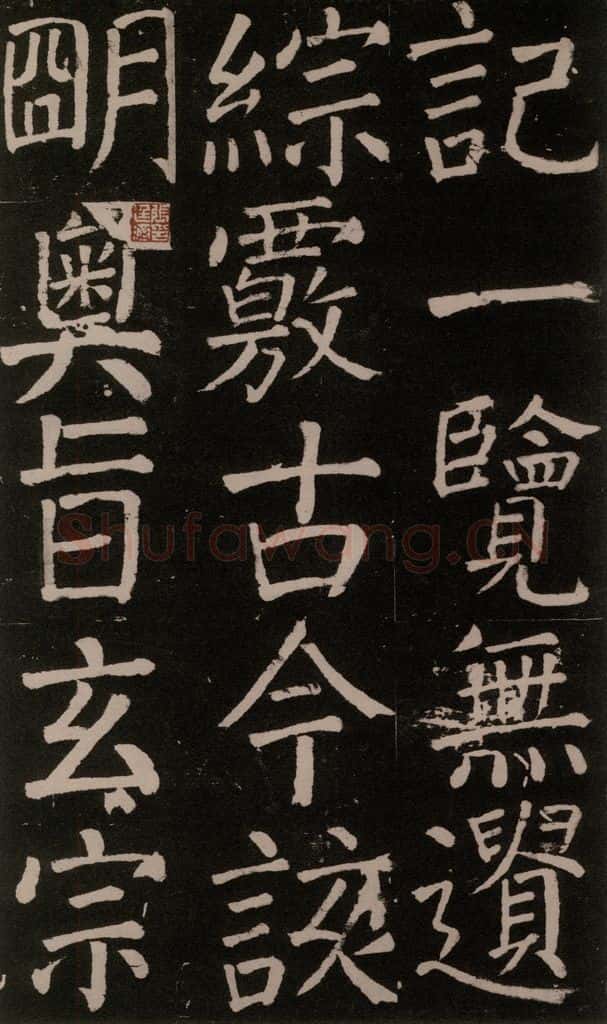 記一覽無遺
綜覈古今該
朙奧旨玄宗
Shufawang.CN